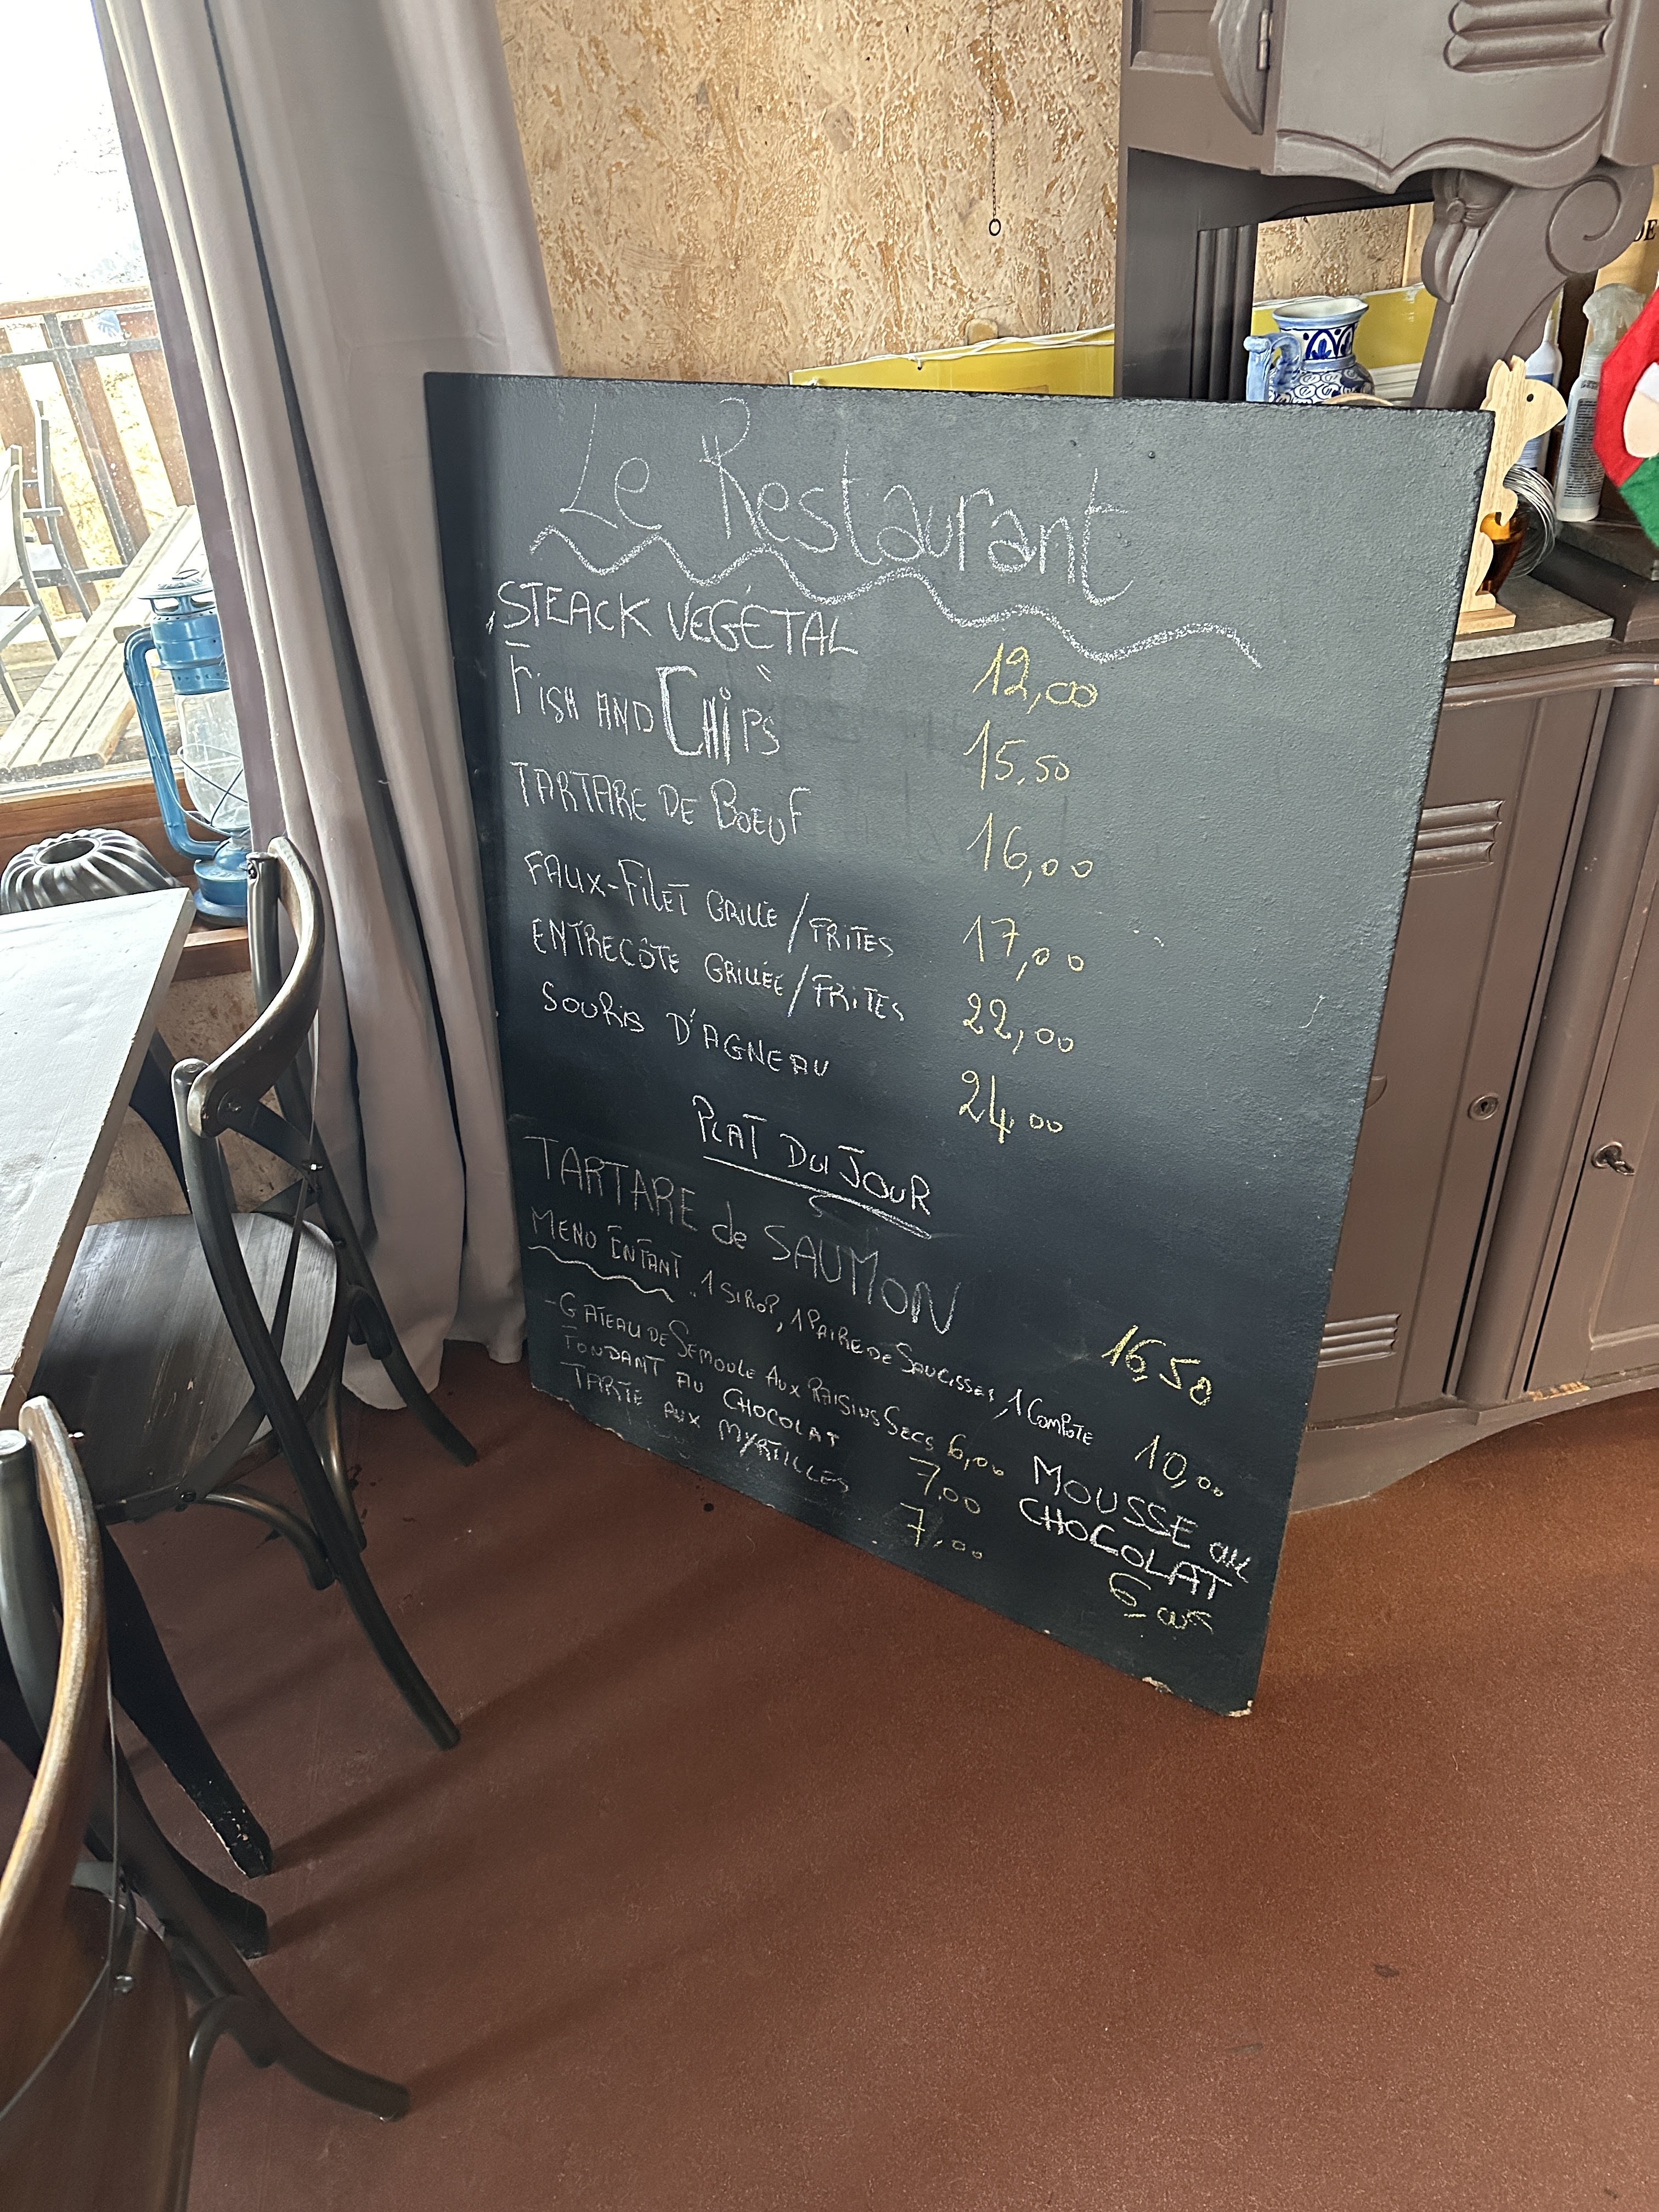 Le Restaurant
STEACK VEGÉTAL 12,00
FISH AND CHIPS 15,50
TARTARE DE BOEUF 16,00
FAUX-FILET GRILLÉ/FRITES 17,00
ENTRECÔTE GRILLÉE/FRITES 22,00
SOURIS D'AGNEAU 24,00
PLAT DU JOUR
TARTARE de SAUMON 16,50
MENU ENFANT. 1 SIROP, 1 PAIRE DE SAUCISSES, 1 COMPOTE 10,00
-GATEAU DE SEMOULE AUX RAISINS SECS 6,00
FONDANT AU CHOCOLAT 7,00
TARTE AUX MYRTILLES 7,00
MOUSSE au
CHOCOLAT
DE